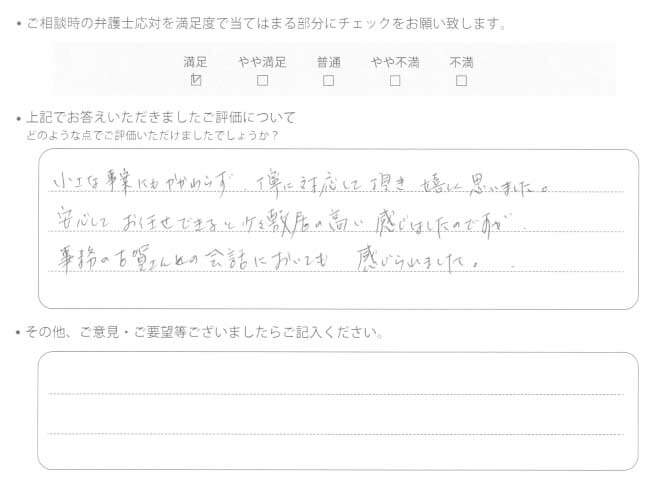 • ご相談時の弁護士応対を満足度で当てはまる部分にチェックをお願い致します。
満足 やや満足 普通 やや不満 不満
• 上記でお答えいただきましたご評価について
どのような点でご評価いただけましたでしょうか？
小さな事案にもかかわらず、丁寧に対応して頂き 嬉しく思いました。
安心して お任せできると 敷居の高い 感じはしたのですが、
事務の古賀さんとの会話においても 感じられました。
• その他、ご意見・ご要望等ございましたらご記入ください。